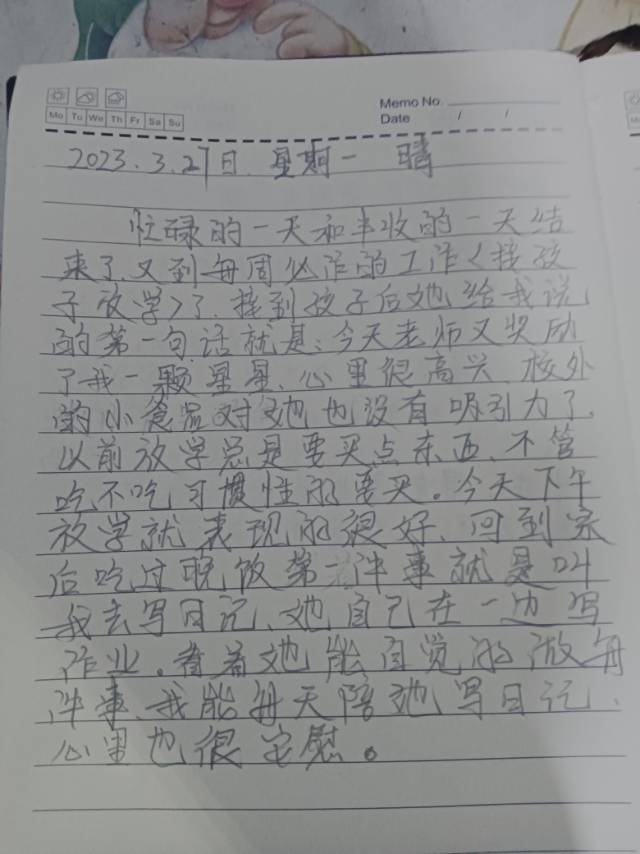 Memo No.
Mo Tu We Th Fr Sa Su
Date / /
2023.3.27日 星期一 晴
忙碌的一天和丰收的一天结
束了、又到每周必作的工作<接孩
子放学>了、接到孩子后她给我说
的第一句话就是:今天老师又奖励
了我一颗星星、心里很高兴、校外
的小食品对她也没有吸引力了。
以前放学总是要买点东西、不管
吃不吃习惯性的要买。今天下午
放学就表现的很好、回到家
后吃过晚饭第一件事就是叫
我去写日记、她自己在一边写
作业。看着她能自觉的做每
件事、我能每天陪她写日记、
心里也很安慰。